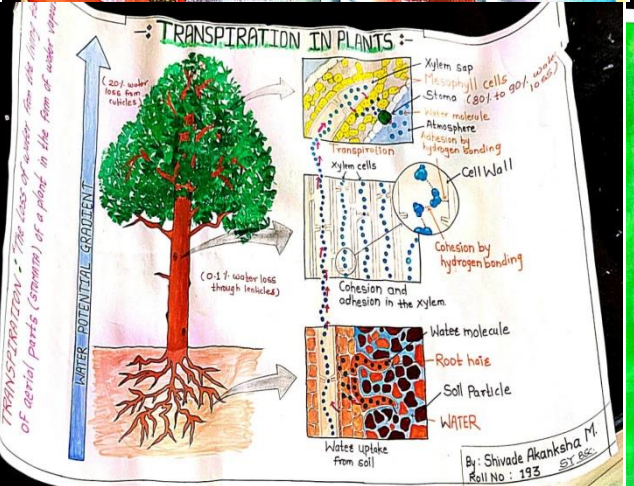 -: TRANSPIRATION IN PLANTS :-
TRANSPIRATION : "The loss of water from the living
of aerial parts (stomata) of a plant in the form of water
WATER POTENTIAL GRADIENT
(20% water
loss from
cuticles)
(0.1% water loss
through lenticles)
Xylem sap
Mesophyll cells
Stoma (80% to 90% water
loss)
Water molecule
Atmosphere
Adhesion by
hydrogen bonding
Transpiration
Xylem cells
Cell Wall
Cohesion by
hydrogen bonding
Cohesion and
adhesion in the xylem
Water molecule
Root hair
Soil Particle
WATER
Water uptake
from soil
By : Shivade Akanksha M.
Roll No : 193 SY BSc.